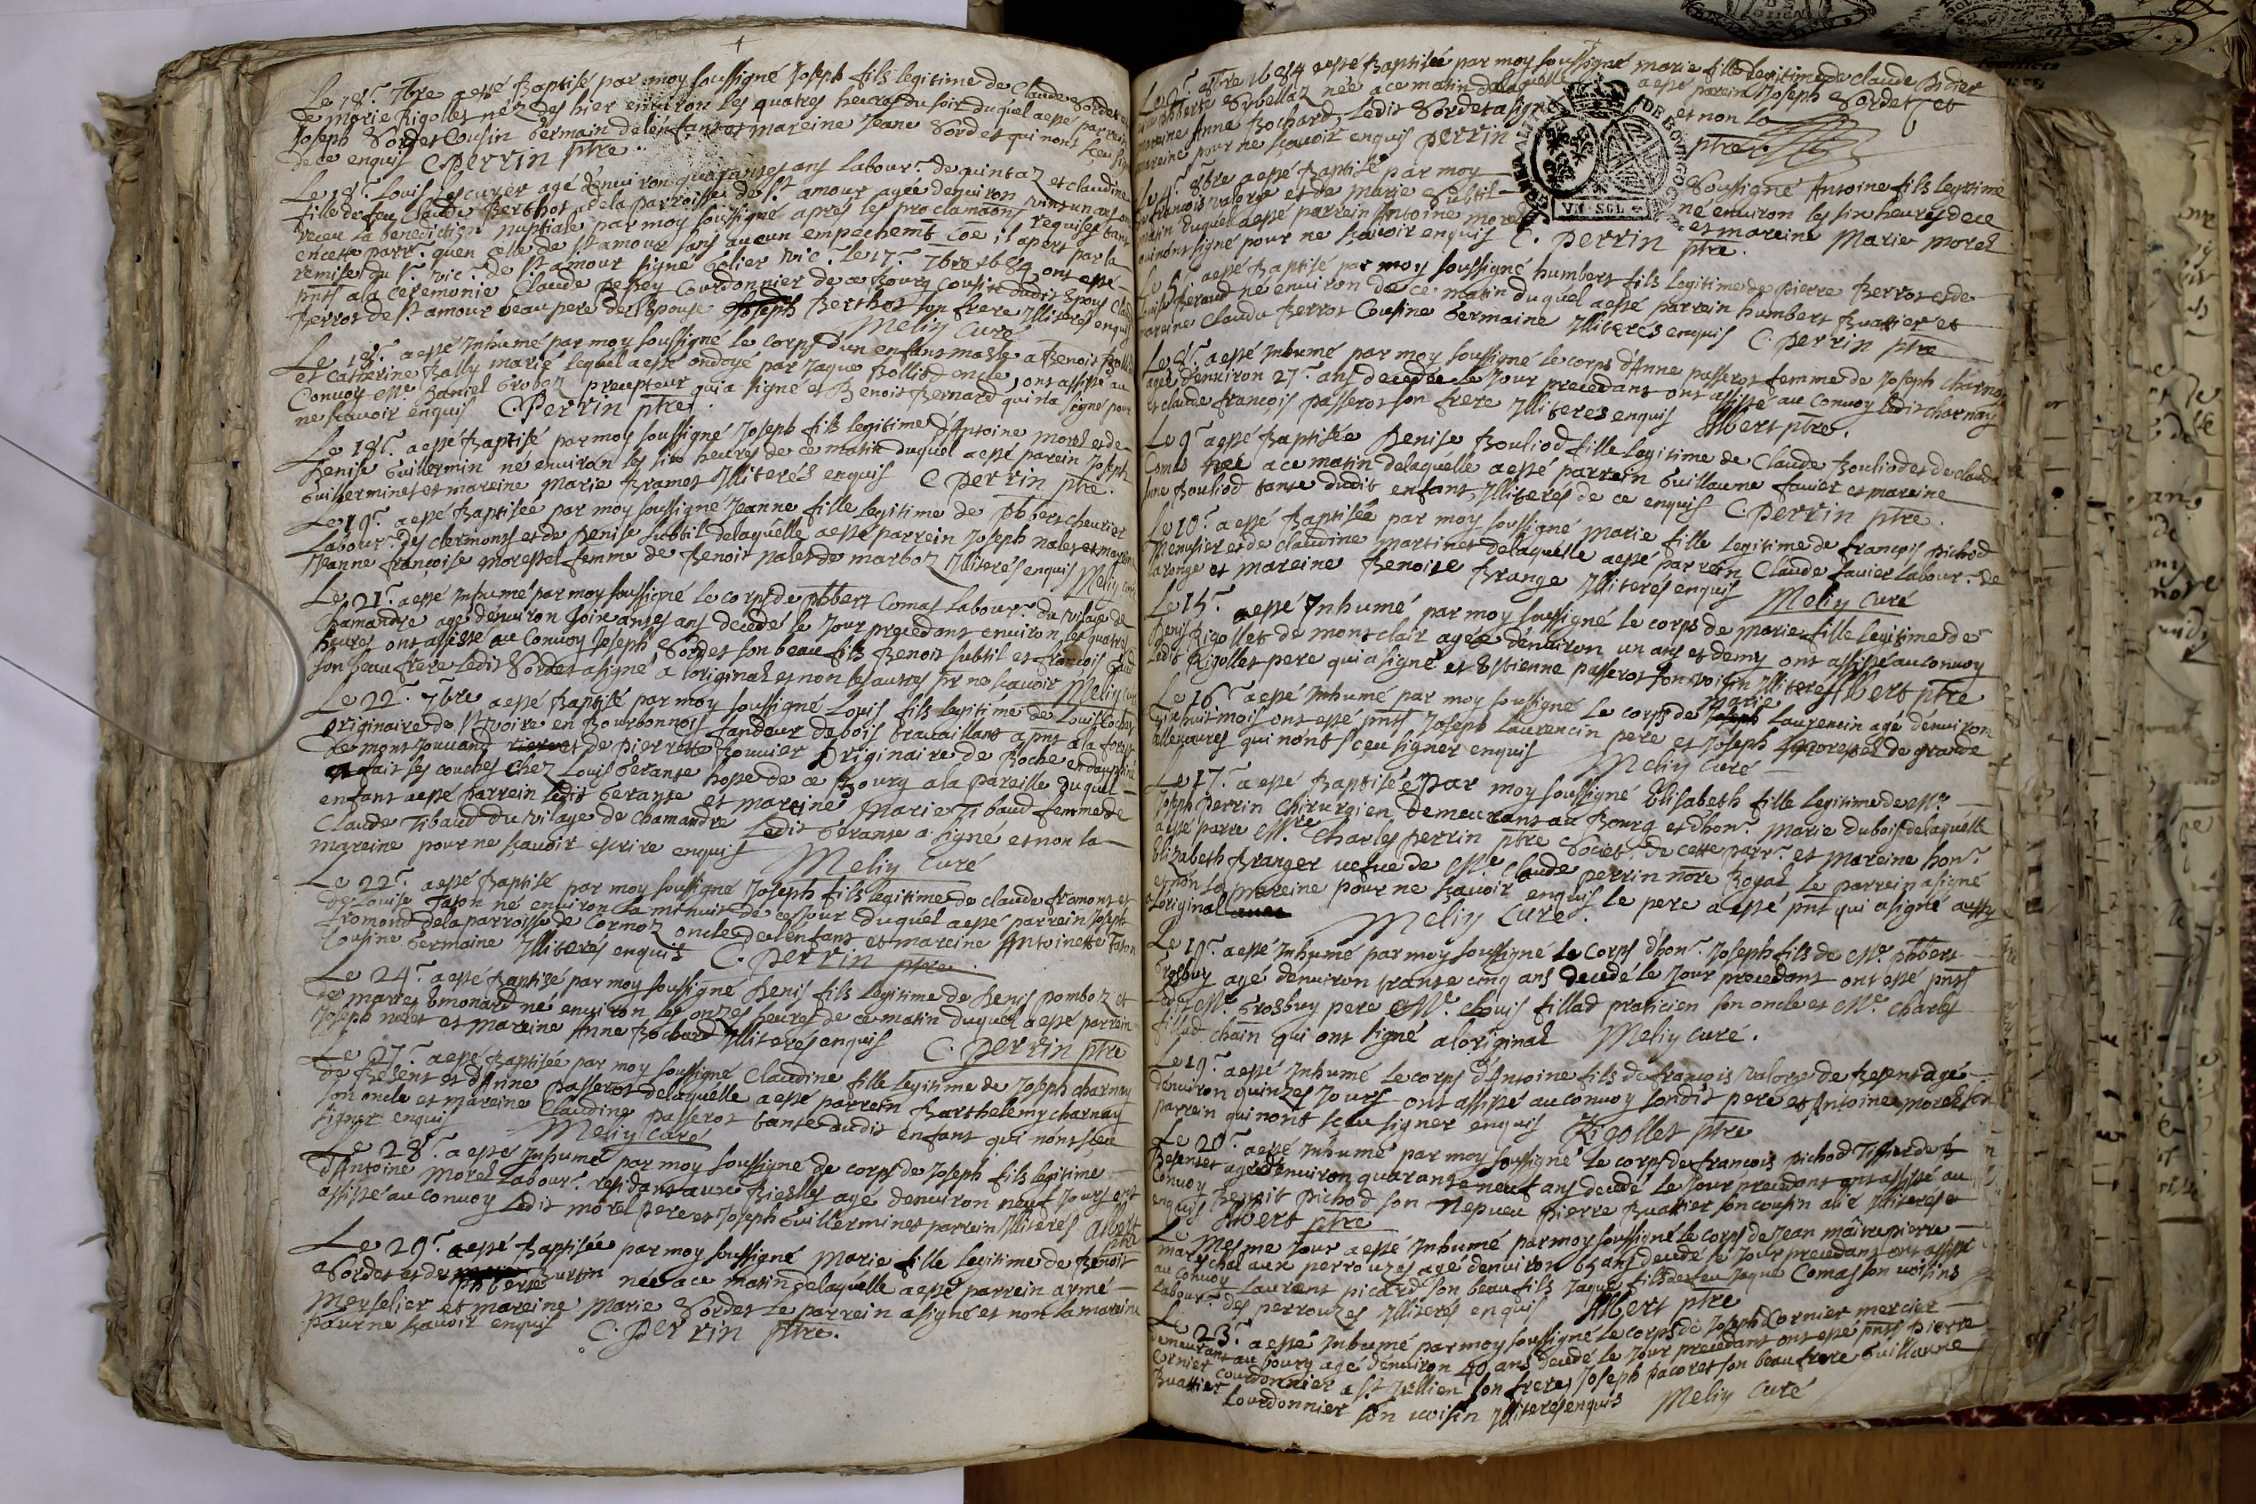 Le 18.e 7bre a esté Baptisé par moy soussigné Joseph fils legitime de Claude Sordet et
de Marie Rigollet né dès hier environ les quatres heures du soir duquel a esté parrein
Joseph Sordet Cousin Germain de l'enfant et mareine Jeane Sordet qui n'ont sceu sig
de ce enquis C. Perrin ptre.
Le 18.e Louis escuyer agé d'environ quarantes ans Labour.r de quintaz et claudine
fille de feu Claude Berthot de la parroisse de St. amour agée denviron vints un ans ont
receu la benediction nuptiale par moy soussigné aprés les proclama.ons requises tant
en cette parr.e quen celle de St amour sans aucun empechemt coe il apert par la
remise du Sr. vic. de St amour signé Golier vic. Le 17.e 7bre 1684 ont esté
pnts a la ceremonie Claude Cordonnier de ce Bourg Cousin dudit Epoux
Berrot de St amour beau pere de l'Epouse Joseph Berthot son frere Illiterés enquis
Meliy Curé
Le 18.e a esté Inhumé par moy soussigné le corps d'un enfant masle a Benoit
et Catherine Bally marié lequel a esté ondoyé par Jaque Bolliod oncle, ont assisté au
Convoy Mr. Daniel Groboz precepteur qui a signé et Benoit Bernard qui n'a signé pour
ne sçavoir enquis C. Perrin ptre
Le 18.e a esté Baptisé par moy soussigné Joseph fils legitime d'Antoine Morel et de
Denise Guillermin né environ les six heures de ce matin duquel a esté parein Joseph
Guillerminet et mareine Marie Bramet Illiterés enquis C. Perrin ptre.
Le 19.e a esté Baptisée par moy soussigné Jeanne fille legitime de phbert cheurier
Labour.r des clermonts et de Denise subtil delaquelle a esté parrein Joseph nalet et mareine
Jeanne françoise morestel femme de Benoit nalet de marboz Illiterés enquis Meliy Curé
Le 21.e a esté Inhumé par moy soussigné le corps de phbert Comas Labour.r du vilage de
Chamandre agé denviron soixantes ans decedé le Jour precedant environ les quatres
heures ont assisté au Convoy Joseph Sordet son beau fils Benoit subtil et françois
son beau frere Ledit Sordet a signé a l'original et non les autres pr ne scavoir Meliy Curé
Le 22.e 7bre a esté Baptisé par moy soussigné Louis fils legitime de Louis
originaire de St Ivoire en Bourbonnois fandeur de bois travaillant a pnt a la forest
de mont Jouvand et de pierrette Bouvier originaire de Roche en dauphiné
a fait ses couches chez Louis Gerante hoste de ce Bourg a la pareille duquel
enfant a esté parrein ledit Gerante et mareine Marie Tibaud femme de
Claude Tibaud du vilage de Chamandre Ledit Gerante a signé et non la
mareine pour ne sçavoir escrire enquis Meliy Curé
Le 22.e a esté Baptisé par moy soussigné Joseph fils legitime de claude fromont et
de Louise Jason né environ la minuit de ce Jour duquel a esté parrein Joseph
fromond de la parroisse de Cormoz oncle de l'enfant et mareine Antoinette Jason
Cousine Germaine Illiterés enquis C. Perrin ptre
Le 24.e a esté Baptisé par moy soussigné Denis fils legitime de Denis pomboz et
de Emonard né environ les onzes heures de ce matin duquel a esté parrein
Joseph noret et mareine Anne Bochard Illiteres enquis C. Perrin ptre
Le 27.e a esté Baptisée par moy soussigné Claudine fille legitime de Joseph charnay
de Besent et d'Anne Passerot delaquelle a esté parrein Barthelemy charnay
son oncle et mareine Claudine Passerot tante dudit enfant qui n'ont sceu
signer enquis Meliy Curé
Le 28.e a esté Inhumé par moy soussigné le corps de Joseph fils legitime
d'Antoine Morel Labour.r residant aux Bielles agé denviron neuf Jours ont
assisté au Convoy Ledit morel pere et Joseph Guillerminet parrein Illiterés Albert ptre
Le 29.e a esté Baptisée par moy soussigné Marie fille legitime de Benoit
Sordet et de phiberte Burtin née a ce matin delaquelle a esté parrein armé
Merselier et mareine Marie Sordet Le parrein a signé et non la mareine
pour ne sçavoir enquis C. Perrin ptre.
Le 8bre 1684 a esté Baptisée par moy soussigné marie fille legitime de claude Didier
et de phberte Sorbellaz née a ce matin delaquelle a esté parein Joseph Sordet et
mareine Anne Bochard, Ledit Sordet a signé et non la
mareine pour ne scavoir enquis Perrin ptre.
GNRALITE DE BOVRGOGNE
VN SOL
Le 4.e 8bre a esté Baptisé par moy Soussigné Antoine fils legitime
de francois valorge et de marie subtil né environ les six heures de ce
matin duquel a esté parrein Antoine morel et mareine Marie Morel
qui n'ont signé pour ne sçavoir enquis C. Perrin ptre.
Le 5.e a esté Baptisé par moy soussigné humbert fils legitime de pierre Berrot et de
Louise Beraud né environ de ce matin duquel a esté parrein humbert Buattier et
mareine Claudu Berrot Cousine Germaine Illiterés enquis C. Perrin ptre
Le 8.e a esté Inhumé par moy soussigné le corps d'Anne passerot femme de Joseph charnay
agée d'environ 27.e ans decedée le Jour precedant ont assisté au Convoy ledit charnay
et claude françois Passerot son frere Illiteres enquis Albert ptre.
Le 9.e a esté Baptisée Denise Bouliod fille legitime de Claude Bouliod et de claudine
Comas née a ce matin delaquelle a esté parrein Guillaume favier et mareine
Bouliod tante dudit enfant, Illiterés de ce enquis C. Perrin ptre.
Le 10.e a esté Baptisée par moy soussigné Marie fille legitime de françois pichod
Menusier et de claudine Martinet delaquelle a esté parrein Claude favier labour.r de
la ronge et mareine Benoite Brange Illiterés enquis Meliy Curé
Le 15.e a esté Inhumé par moy soussigné le corps de Marie fille legitime de
Denis Rigollet de montclair agée denviron un ans et demy ont assisté au convoy
Ledit Rigollet pere qui a signé et Estienne passerot son voisin Illiteré Albert ptre
Le 16.e a esté Inhumé par moy soussigné le corps de Marie Laurencin agé denviron
dix huit mois ont esté pnts Joseph Laurencin pere et Joseph Morestel de grande
allevoures qui n'ont sceu signer enquis Meliy Curé
Le 17.e a esté Baptisée par moy soussigné Elisabeth fille legitime de Mr.
Joseph Perrin Chirurgien demeurant au Bourg et d'hon.e Marie dubois delaquelle
a esté parre Mre Charles Perrin ptre Societ. de cette parr.e et mareine hon.e
Elizabeth Branger vefve de Mre Claude Perrin nore Royal Le parrein a signé
et non la mareine pour ne sçavoir enquis le pere a esté pnt qui a signé aussy
a l'original Meliy Curé.
Le 19.e a esté Inhumé par moy soussigné le corps d'hon.e Joseph fils de Mr. phbert
Grosbuy agé denviron trante cinq ans decedé le Jour precedant ont esté pnts
Ledit Mr. Grosbuy pere Mr. Louis fillod praticien son oncle et Mr. Charles
fillod chain qui ont signé a l'original Meliy Curé.
Le 19.e a esté Inhumé Le corps d'Antoine fils de françois valorge de Besent agé
d'environ quinzes Jours ont assisté au convoy sondit pere et Antoine morel son
parrein qui n'ont sceu signer enquis Rigollet ptre
Le 20.e a esté Inhumé par moy soussigné le corps de francois pichod Tissier de
Besent agé denviron quarante neuf ans decedé le Jour precedant ont assisté au
convoy Benoit Pichod son Nepveu Pierre Buattier son cousin alié Illiterés
enquis Albert ptre
Le mesme Jour a esté Inhumé par moy soussigné le corps de Jean maitrepierre
mareschal aux perrouzes agé denviron 65 ans decedé le Jour precedant ont assisté
au Convoy Laurent picard son beau fils Jaque fils de feu Jaque Comas son voisins
Labour.r des perrouzes Illiterés enquis Albert ptre
Le 23.e a esté Inhumé par moy soussigné le corps de Joseph Cornier mercier
demeurant au bourg agé d'environ 40 ans decedé le Jour precedant ont esté pnts Pierre
Cornier Courdonnier a St Jullien son frere, Joseph Pacoret son beau frere Guillaume
Buattier Courdonnier son voisin Illiterés enquis Meliy Curé